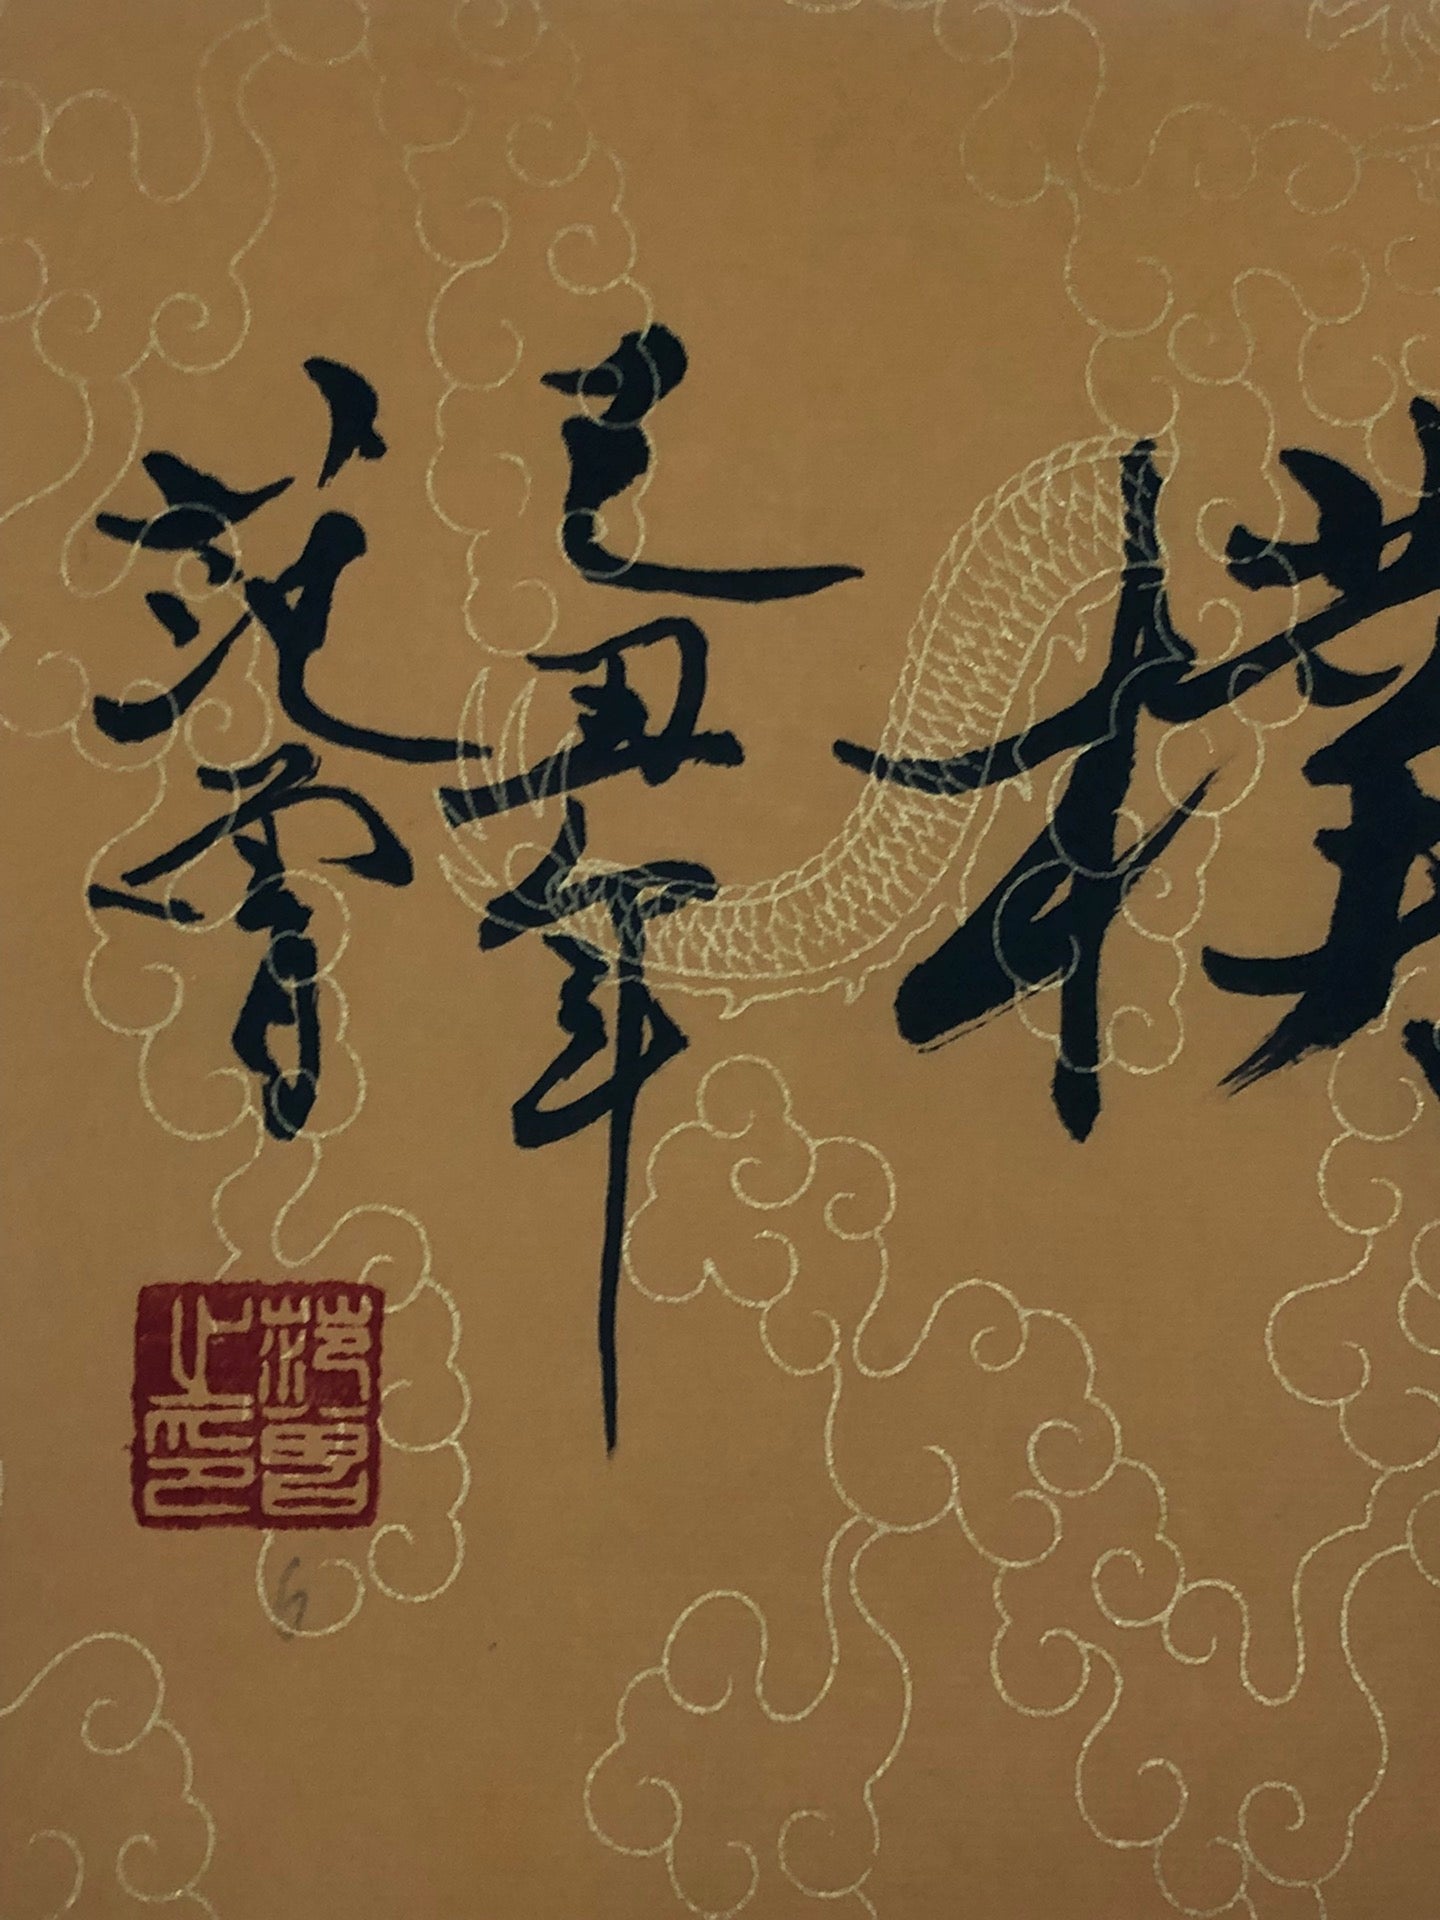 樸
己丑年
范曾
范曾
之印